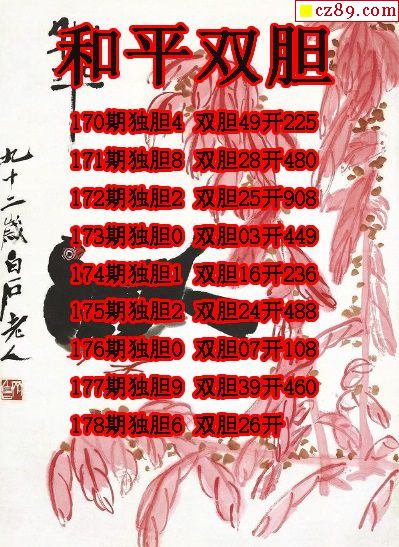 cz89.com
和平双胆
170期独胆4 双胆49开225
171期独胆8 双胆28开480
172期独胆2 双胆25开908
173期独胆0 双胆03开449
174期独胆1 双胆16开236
175期独胆2 双胆24开488
176期独胆0 双胆07开108
177期独胆9 双胆39开460
178期独胆6 双胆26开
九十二岁白石老人